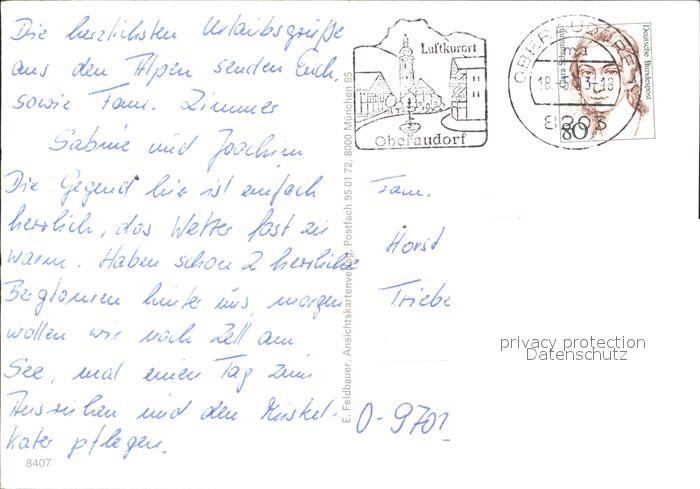 Die herzlichsten Urlaubsgrüße
aus den Alpen senden Euch,
sowie Fam. Zimmer
Sabine und Joachim
Die Gegend hier ist einfach
herrlich, das Wetter fast zu
warm. Haben schon 2 herrliche
Bergtouren hinter uns, morgen
wollen wir nach Zell am
See, mal einen Tag zum
Ausruhen und den Muskel-
kater pflegen.
8407
E. Feldbauer, Ansichtskartenverlag, Postfach 95 01 72, 8000 München 95
Luftkurort
Oberaudorf
OBERAUDORF
18.
-18
8203
Deutsche Bundespost
Clara Schumann
80
Fam.
Horst
Triebe
O-9701
privacy protection
Datenschutz